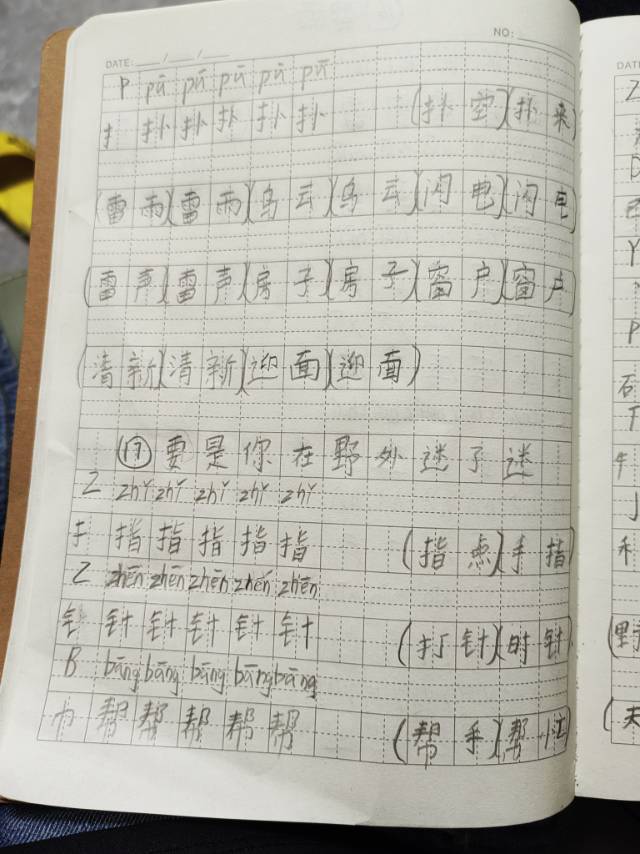 DATE: ___/___/___ NO:
P pū pū pū pū pū
扌 扑 扑 扑 扑 扑 (扑空)(扑来)
(雷雨)(雷雨)(乌云)(乌云)(闪电)(闪电)
(雷声)(雷声)(房子)(房子)(窗户)(窗户)
(清新)(清新)(迎面)(迎面)
⑰ 要是你在野外迷了迷
Z zhǐ zhǐ zhǐ zhǐ zhǐ
扌 指 指 指 指 指 (指点)(手指)
Z zhēn zhēn zhēn zhēn zhēn
钅 针 针 针 针 针 (打针)(时针)
B bāng bāng bāng bāng bāng
巾 帮 帮 帮 帮 帮 (帮手)(帮忙)
DAT
Z
D
Y
P
石
T
牛
J
禾
(野
(天